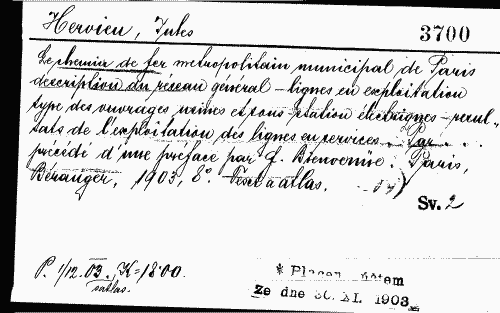 Hervieu, Jules
3700
Le chemin de fer metropolitain municipal de Paris
description du réseau général – lignes en exploitation
type des ouvrages usines et sous-station électriques – resul-
tats de l'exploitation des lignes en services. Par . . .
précédé d'une préface par f. Bienvenüe. Paris,
Béranger, 1903, 8°. Texte a atlas.
Sv. 2
P. 1/12.03. K=18.00.
* Placen
Ze dne 30. XI. 1903